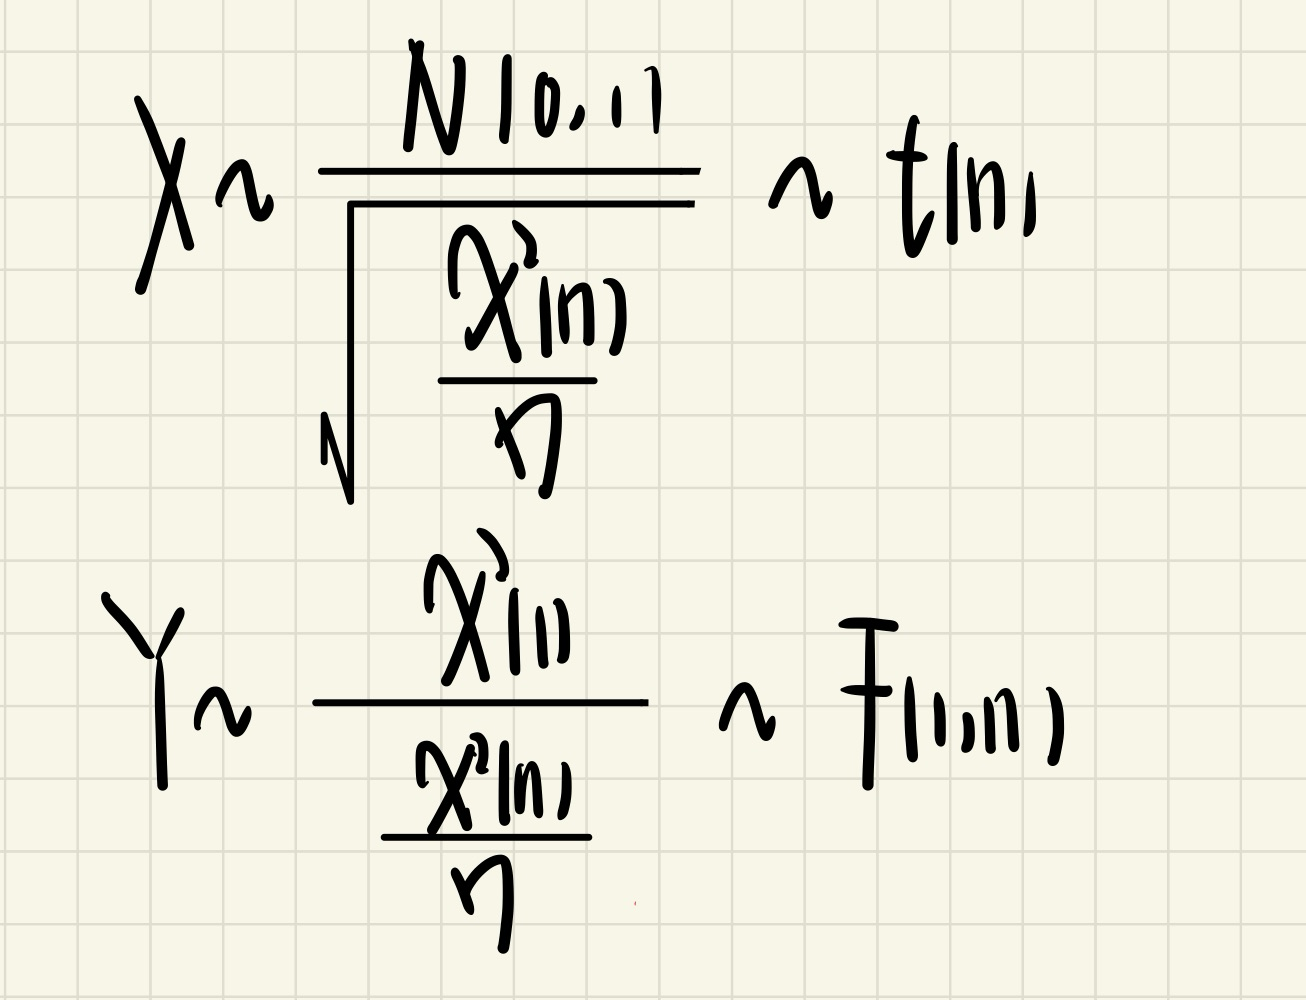 X ~ N(0,1) / √(χ²(n) / n) ~ t(n)
Y ~ χ²(1) / (χ²(n) / n) ~ F(1,n)